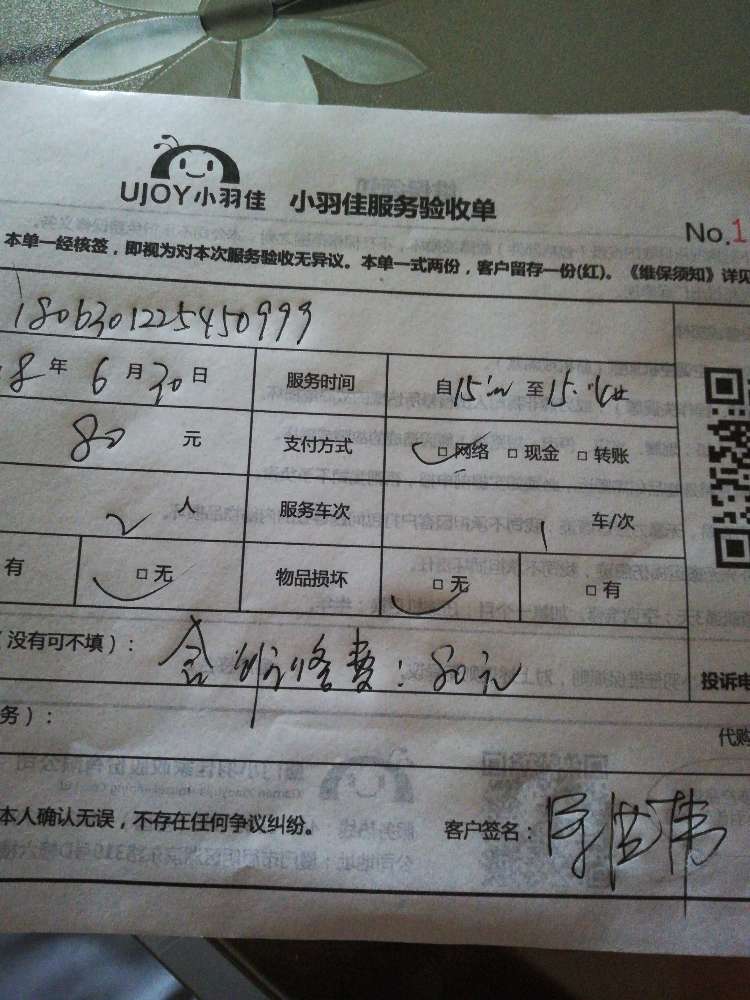 UJOY小羽佳 小羽佳服务验收单
No.1
本单一经核签，即视为对本次服务验收无异议。本单一式两份，客户留存一份(红)。《维保须知》详见
180630122545099​9
8年6月30日 服务时间 自15: 至15:
80元 支付方式 □网络 □现金 □转账
2人 服务车次 1车/次
有 □无 物品损坏 □无 □有
（没有可不填）： 含 修费：80元
投诉电
务）：
代购
本人确认无误，不存在任何争议纠纷。 客户签名：